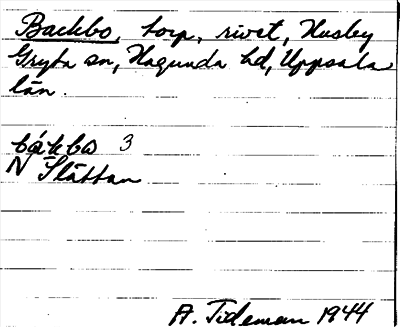 Backbo, torp, rivet, Husby
Gryta sn, Hagunda hd, Uppsala
län.
bákbo 3
N Slättan
A. Tideman 1944